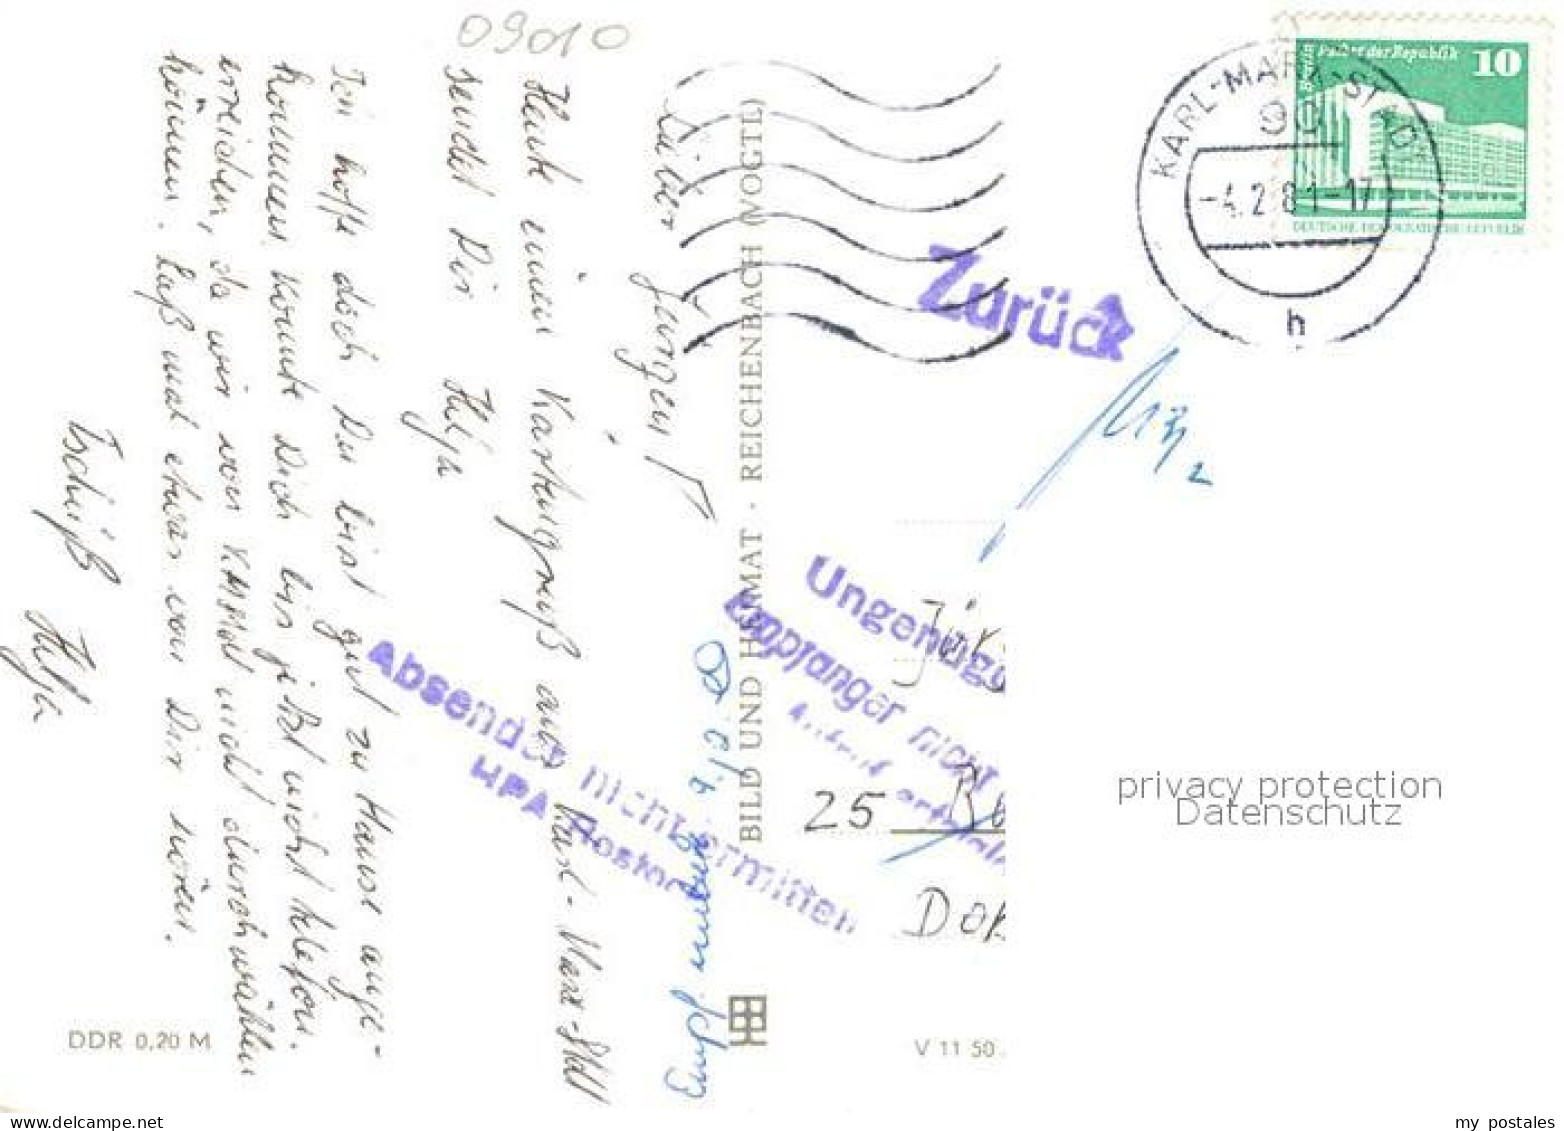 09010
Lieber Jürgen!
Heute einen Kartengruß aus Karl-Marx-Stadt
sendet Dir Helga
Ich hoffe doch Du bist gut zu Hause ange-
kommen. Konnte Dich bis jetzt nicht telefon.
erreichen, da wir von KMSt nicht durchwählen
können. Laß mal etwas von Dir hören.
Tschüß Helga
DDR 0,20 M
BILD UND HEIMAT · REICHENBACH (VOGTL)
V 11 50
Berlin Palast der Republik
10
DEUTSCHE DEMOKRATISCHE REPUBLIK
KARL-MARX-STADT
90
-4.2.81-17
h
Zurück
Ungenüge
Empfänger nicht
Absender nicht ermitteln
HPA Rostock
Empf. unbek.
25
privacy protection
Datenschutz
my postales